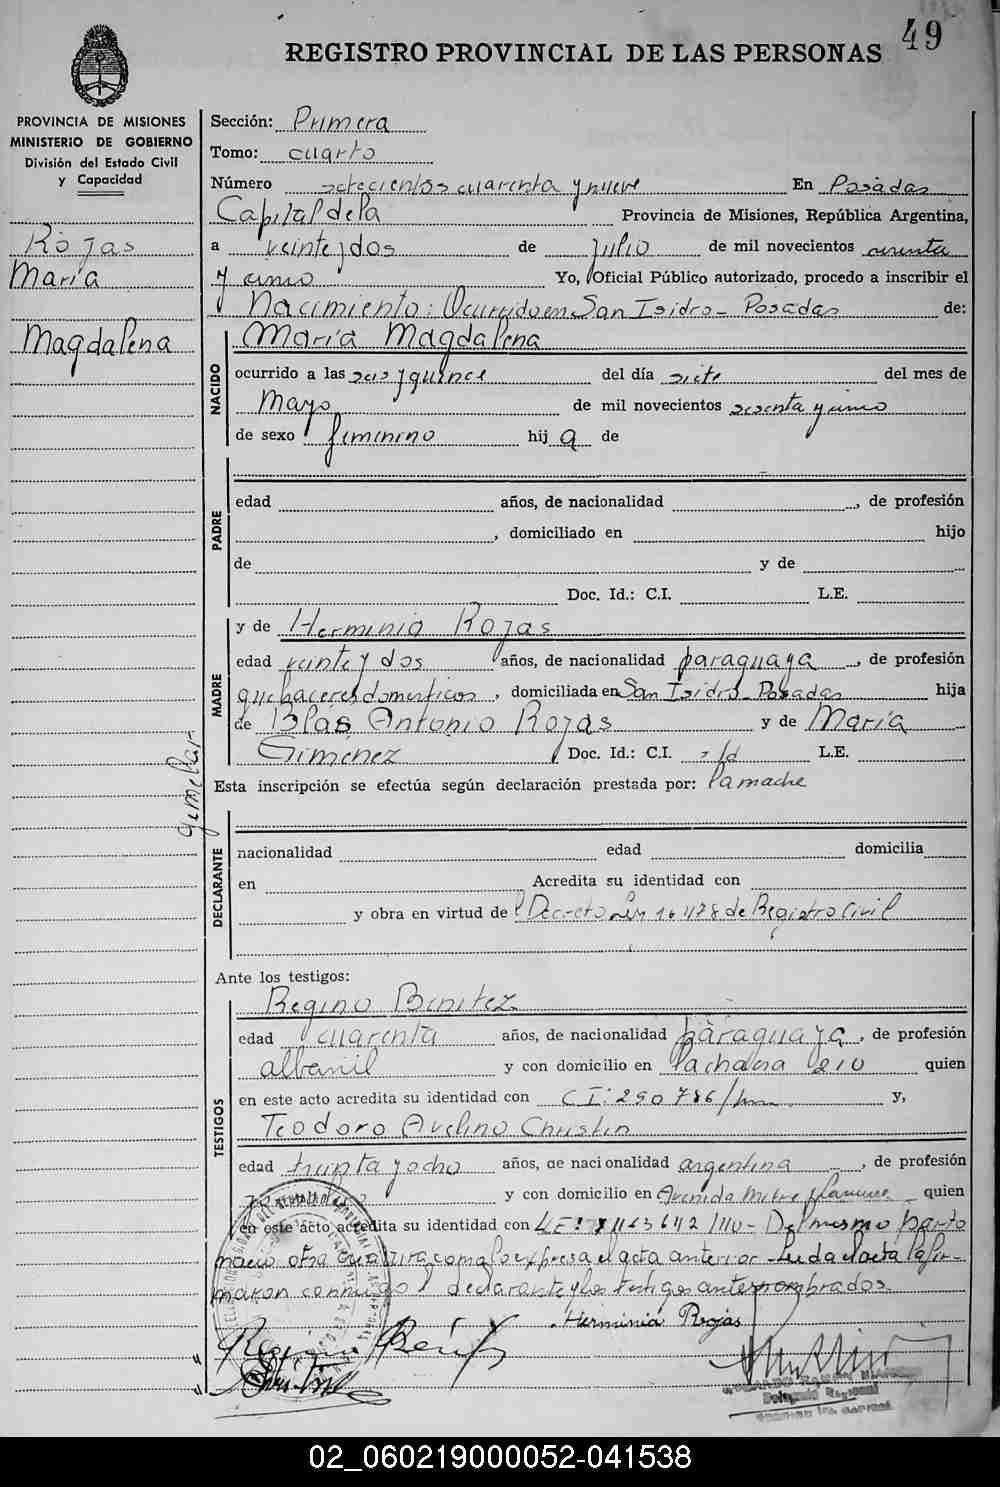 49
REGISTRO PROVINCIAL DE LAS PERSONAS
PROVINCIA DE MISIONES
MINISTERIO DE GOBIERNO
División del Estado Civil
y Capacidad
Rojas
María
Magdalena
gemelar
Sección: Primera
Tomo: cuarto
Número setecientos cuarenta y nueve En Posadas
Capital de la Provincia de Misiones, República Argentina,
a veinte y dos de julio de mil novecientos sesenta
y uno Yo, Oficial Público autorizado, procedo a inscribir el
Nacimiento: Ocurrido en San Isidro - Posadas de:
NACIDO
María Magdalena
ocurrido a las seis y quince del día siete del mes de
Mayo de mil novecientos sesenta y uno
de sexo femenino hij a de
PADRE
edad años, de nacionalidad , de profesión
, domiciliado en hijo
de y de
Doc. Id.: C.I. L.E.
MADRE
y de Herminia Rojas
edad veinte y dos años, de nacionalidad paraguaya , de profesión
quehaceres domésticos , domiciliada en San Isidro - Posadas hija
de Blas Antonio Rojas y de María
Gimenez Doc. Id.: C.I. L.E.
Esta inscripción se efectúa según declaración prestada por: la madre
DECLARANTE
nacionalidad edad domicilia
en Acredita su identidad con
y obra en virtud de Decreto Ley 16478 de Registro Civil
Ante los testigos:
TESTIGOS
Regino Benitez
edad cuarenta años, de nacionalidad paraguaya , de profesión
albanil y con domicilio en la chacra 210 quien
en este acto acredita su identidad con C I: 290786 y,
Teodoro Avelino
edad treinta y ocho años, de nacionalidad argentina , de profesión
y con domicilio en Avenida Mitre quien
en este acto acredita su identidad con Del mismo parto
nació otra criatura como lo expresa el acta anterior - Leida el acta la fir-
maron conmigo declarante y los testigos antes nombrados
Herminia Rojas
Regino Benitez
Delegado Regional
02_060219000052-041538